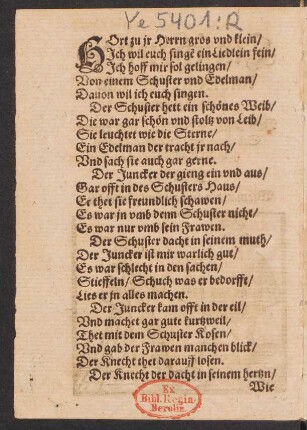 Ye 5401:R
HOrt zu jr Herrn gros vnd klein/
Jch wil euch singē ein Liedlein fein/
Jch hoff mir sol gelingen/
Von einem Schuster vnd Edelman/
Dauon wil ich euch singen.
Der Schuster hett ein schönes Weib/
Die war gar schön vnd stoltz von Leib/
Sie leuchtet wie die Sterne/
Ein Edelman der tracht jr nach/
Vnd sach sie auch gar gerne.
Der Juncker der gieng ein vnd aus/
Gar offt in des Schusters Haus/
Er thet sie freundlich schawen/
Es war jn vmb dem Schuster nicht/
Es war nur vmb sein Frawen.
Der Schuster dacht in seinem muth/
Der Juncker ist mir warlich gut/
Es war schlecht in den sachen/
Stieffeln/ Schuch was er bedorfft/
Lies er jn alles machen.
Der Juncker kam offt in der eil/
Vnd machet gar gute kurtzweil/
Thet mit dem Schuster Kosen/
Vnd gab der Frawen manchen blick/
Der Knecht thet darauff losen.
Der Knecht der dacht in seinem hertzn/
Wie
Ex
Bibl. Regia
Berolin.